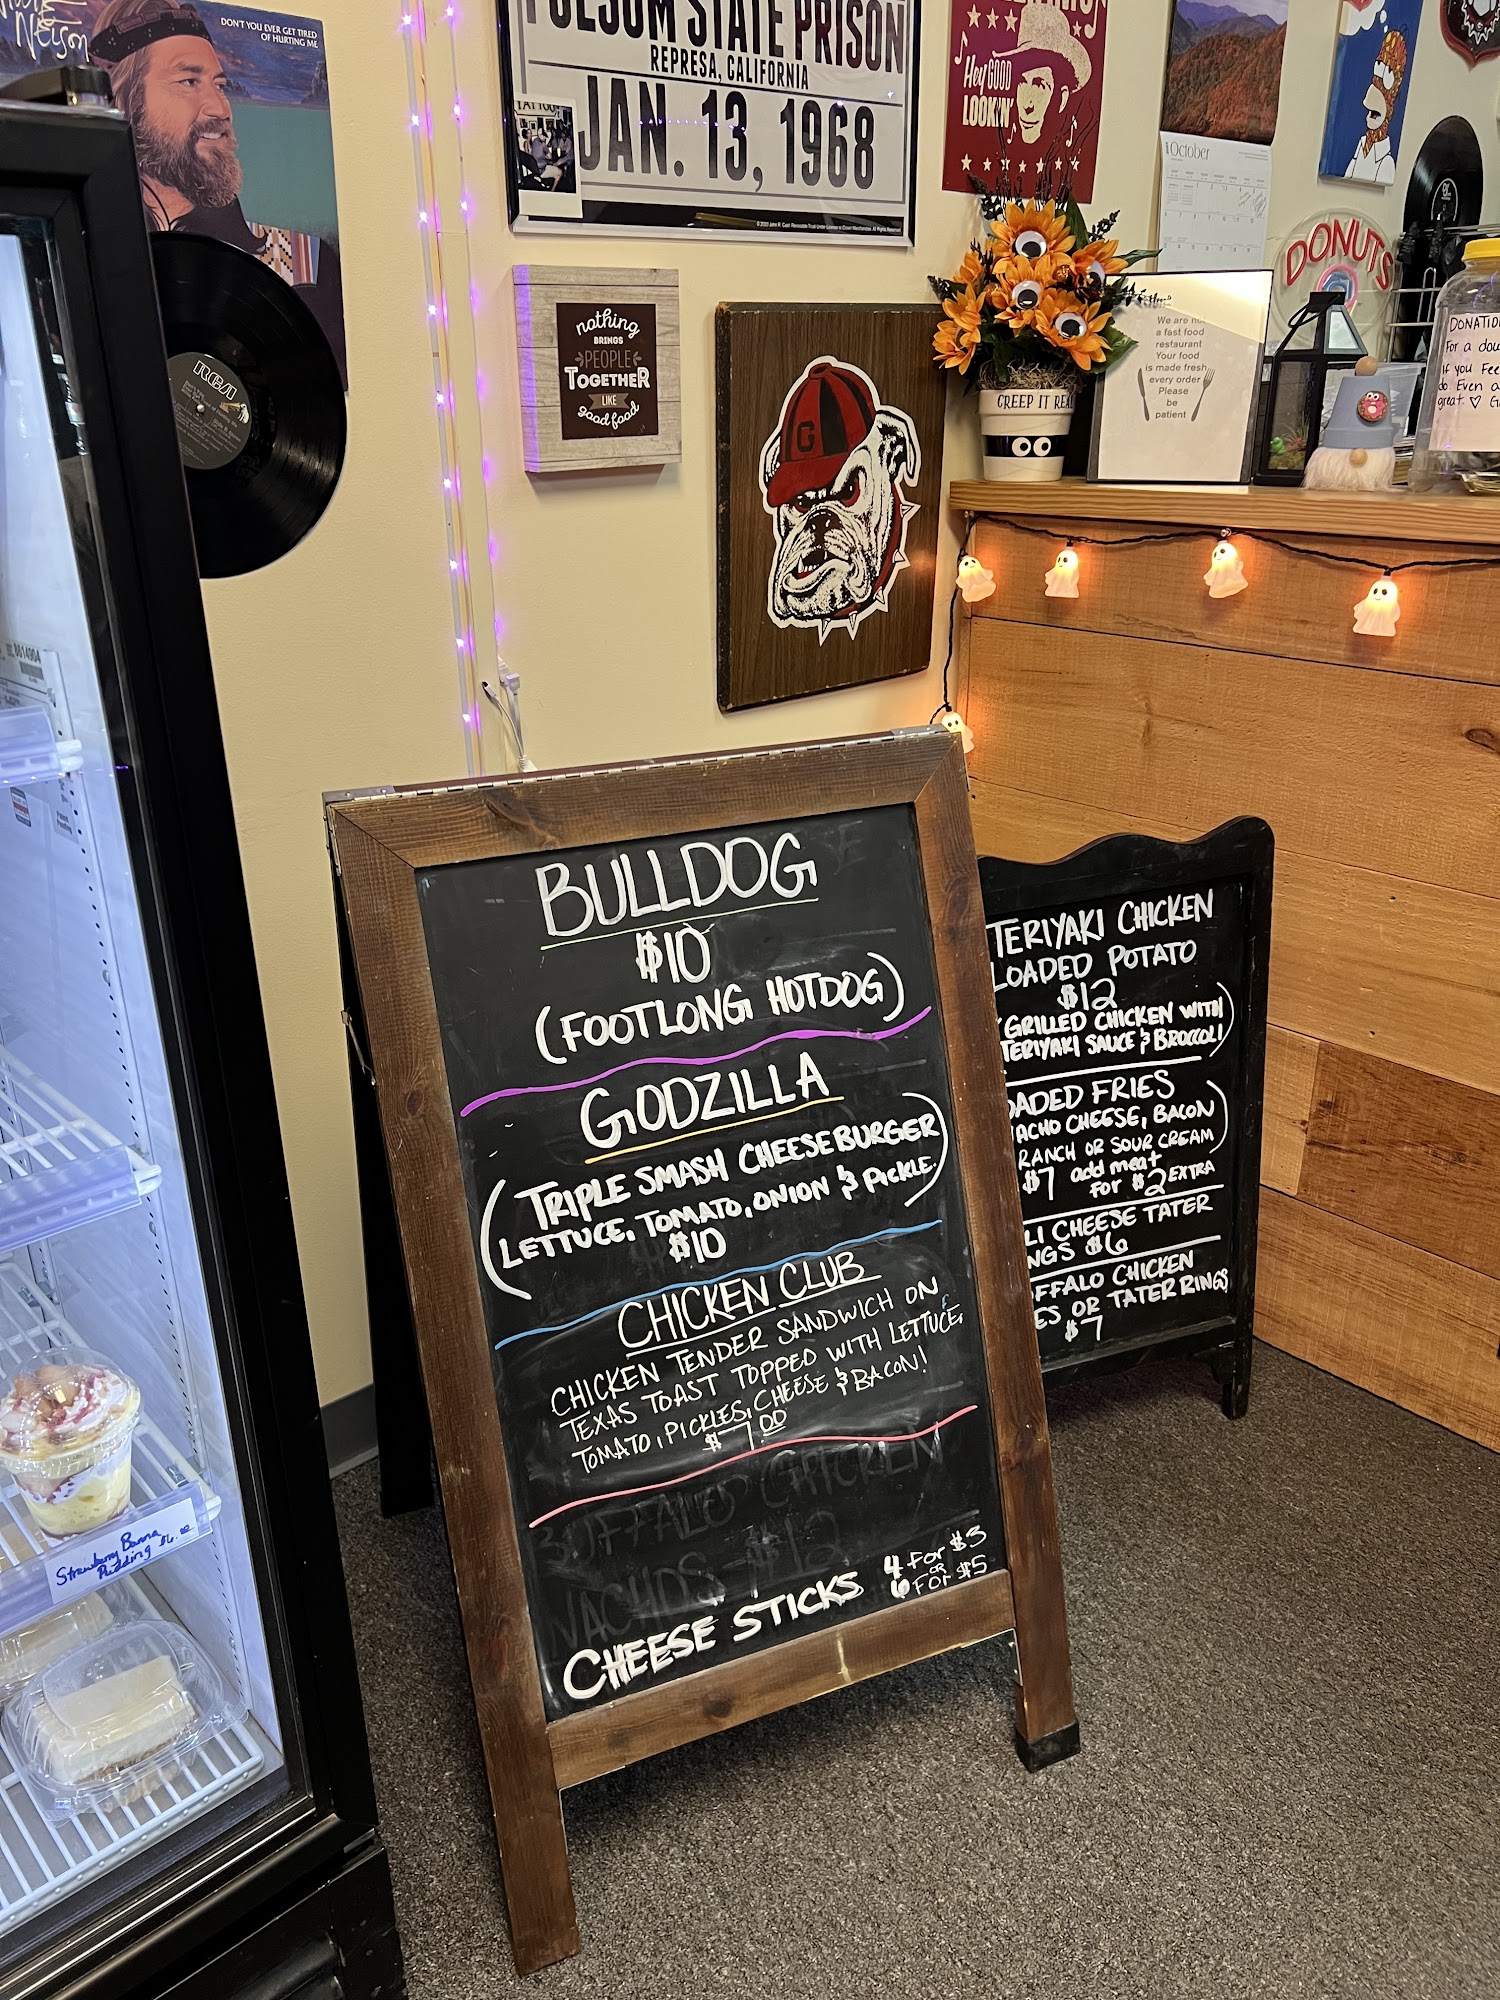 Nelson
DON'T YOU EVER GET TIRED
OF HURTING ME
RCA
FOLSOM STATE PRISON
REPRESA, CALIFORNIA
JAN. 13, 1968
TATTOO
Hey GOOD
LOOKIN'
October
DONUTS
nothing
BRINGS
PEOPLE
TOGETHER
LIKE
good food
G
CREEP IT REAL
We are not
a fast food
restaurant
Your food
is made fresh
every order
Please
be
patient
For a
If you
Even
great. ♡
BULLDOG
$10
(FOOTLONG HOTDOG)
GODZILLA
(TRIPLE SMASH CHEESEBURGER
LETTUCE, TOMATO, ONION & PICKLE)
$10
CHICKEN CLUB
CHICKEN TENDER SANDWICH ON
TEXAS TOAST TOPPED WITH LETTUCE,
TOMATO, PICKLES, CHEESE & BACON!
$7.00
BUFFALO CHICKEN
NACHOS
CHEESE STICKS
4 FOR $3
OR
6 FOR $5
TERIYAKI CHICKEN
LOADED POTATO
$12
(GRILLED CHICKEN WITH
TERIYAKI SAUCE & BROCCOLI)
OADED FRIES
ACHO CHEESE, BACON
RANCH OR SOUR CREAM)
$7 add meat
FOR $2 EXTRA
LI CHEESE TATER
NGS $6
FFALO CHICKEN
ES OR TATER RINGS
$7
Strawberry Banana
Pudding $6.00